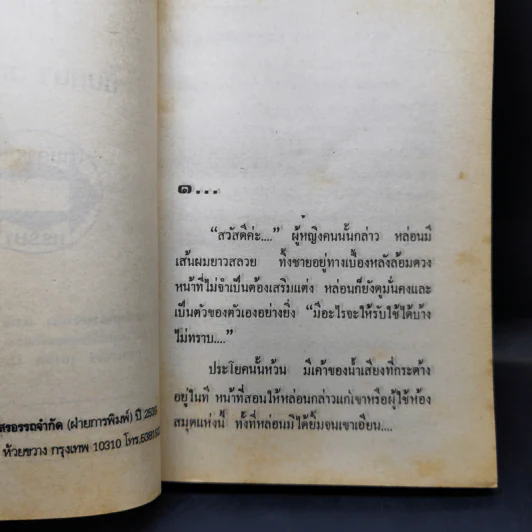 สรอรรถจำกัด (ฝ่ายการพิมพ์) ปี
ห้วยขวาง กรุงเทพ 10310 โทร.
๑...
“สวัสดีค่ะ....” ผู้หญิงคนนั้นกล่าว หล่อนมี
เส้นผมยาวสลวย ทิ้งชายอยู่ทางเบื้องหลังล้อมดวง
หน้าที่ไม่จำเป็นต้องเสริมแต่ง หล่อนก็ยังดูมั่นคงและ
เป็นตัวของตัวเองอย่างยิ่ง “มีอะไรจะให้รับใช้ได้บ้าง
ไม่ทราบ....”
ประโยคนั้นห้วน มีเค้าของน้ำเสียงที่กระด้าง
อยู่ในที หน้าที่สอนให้หล่อนกล่าวแก่เขาหรือผู้ใช้ห้อง
สมุดแห่งนี้ ทั้งที่หล่อนมิได้ยิ้มจนเขาเอียน....